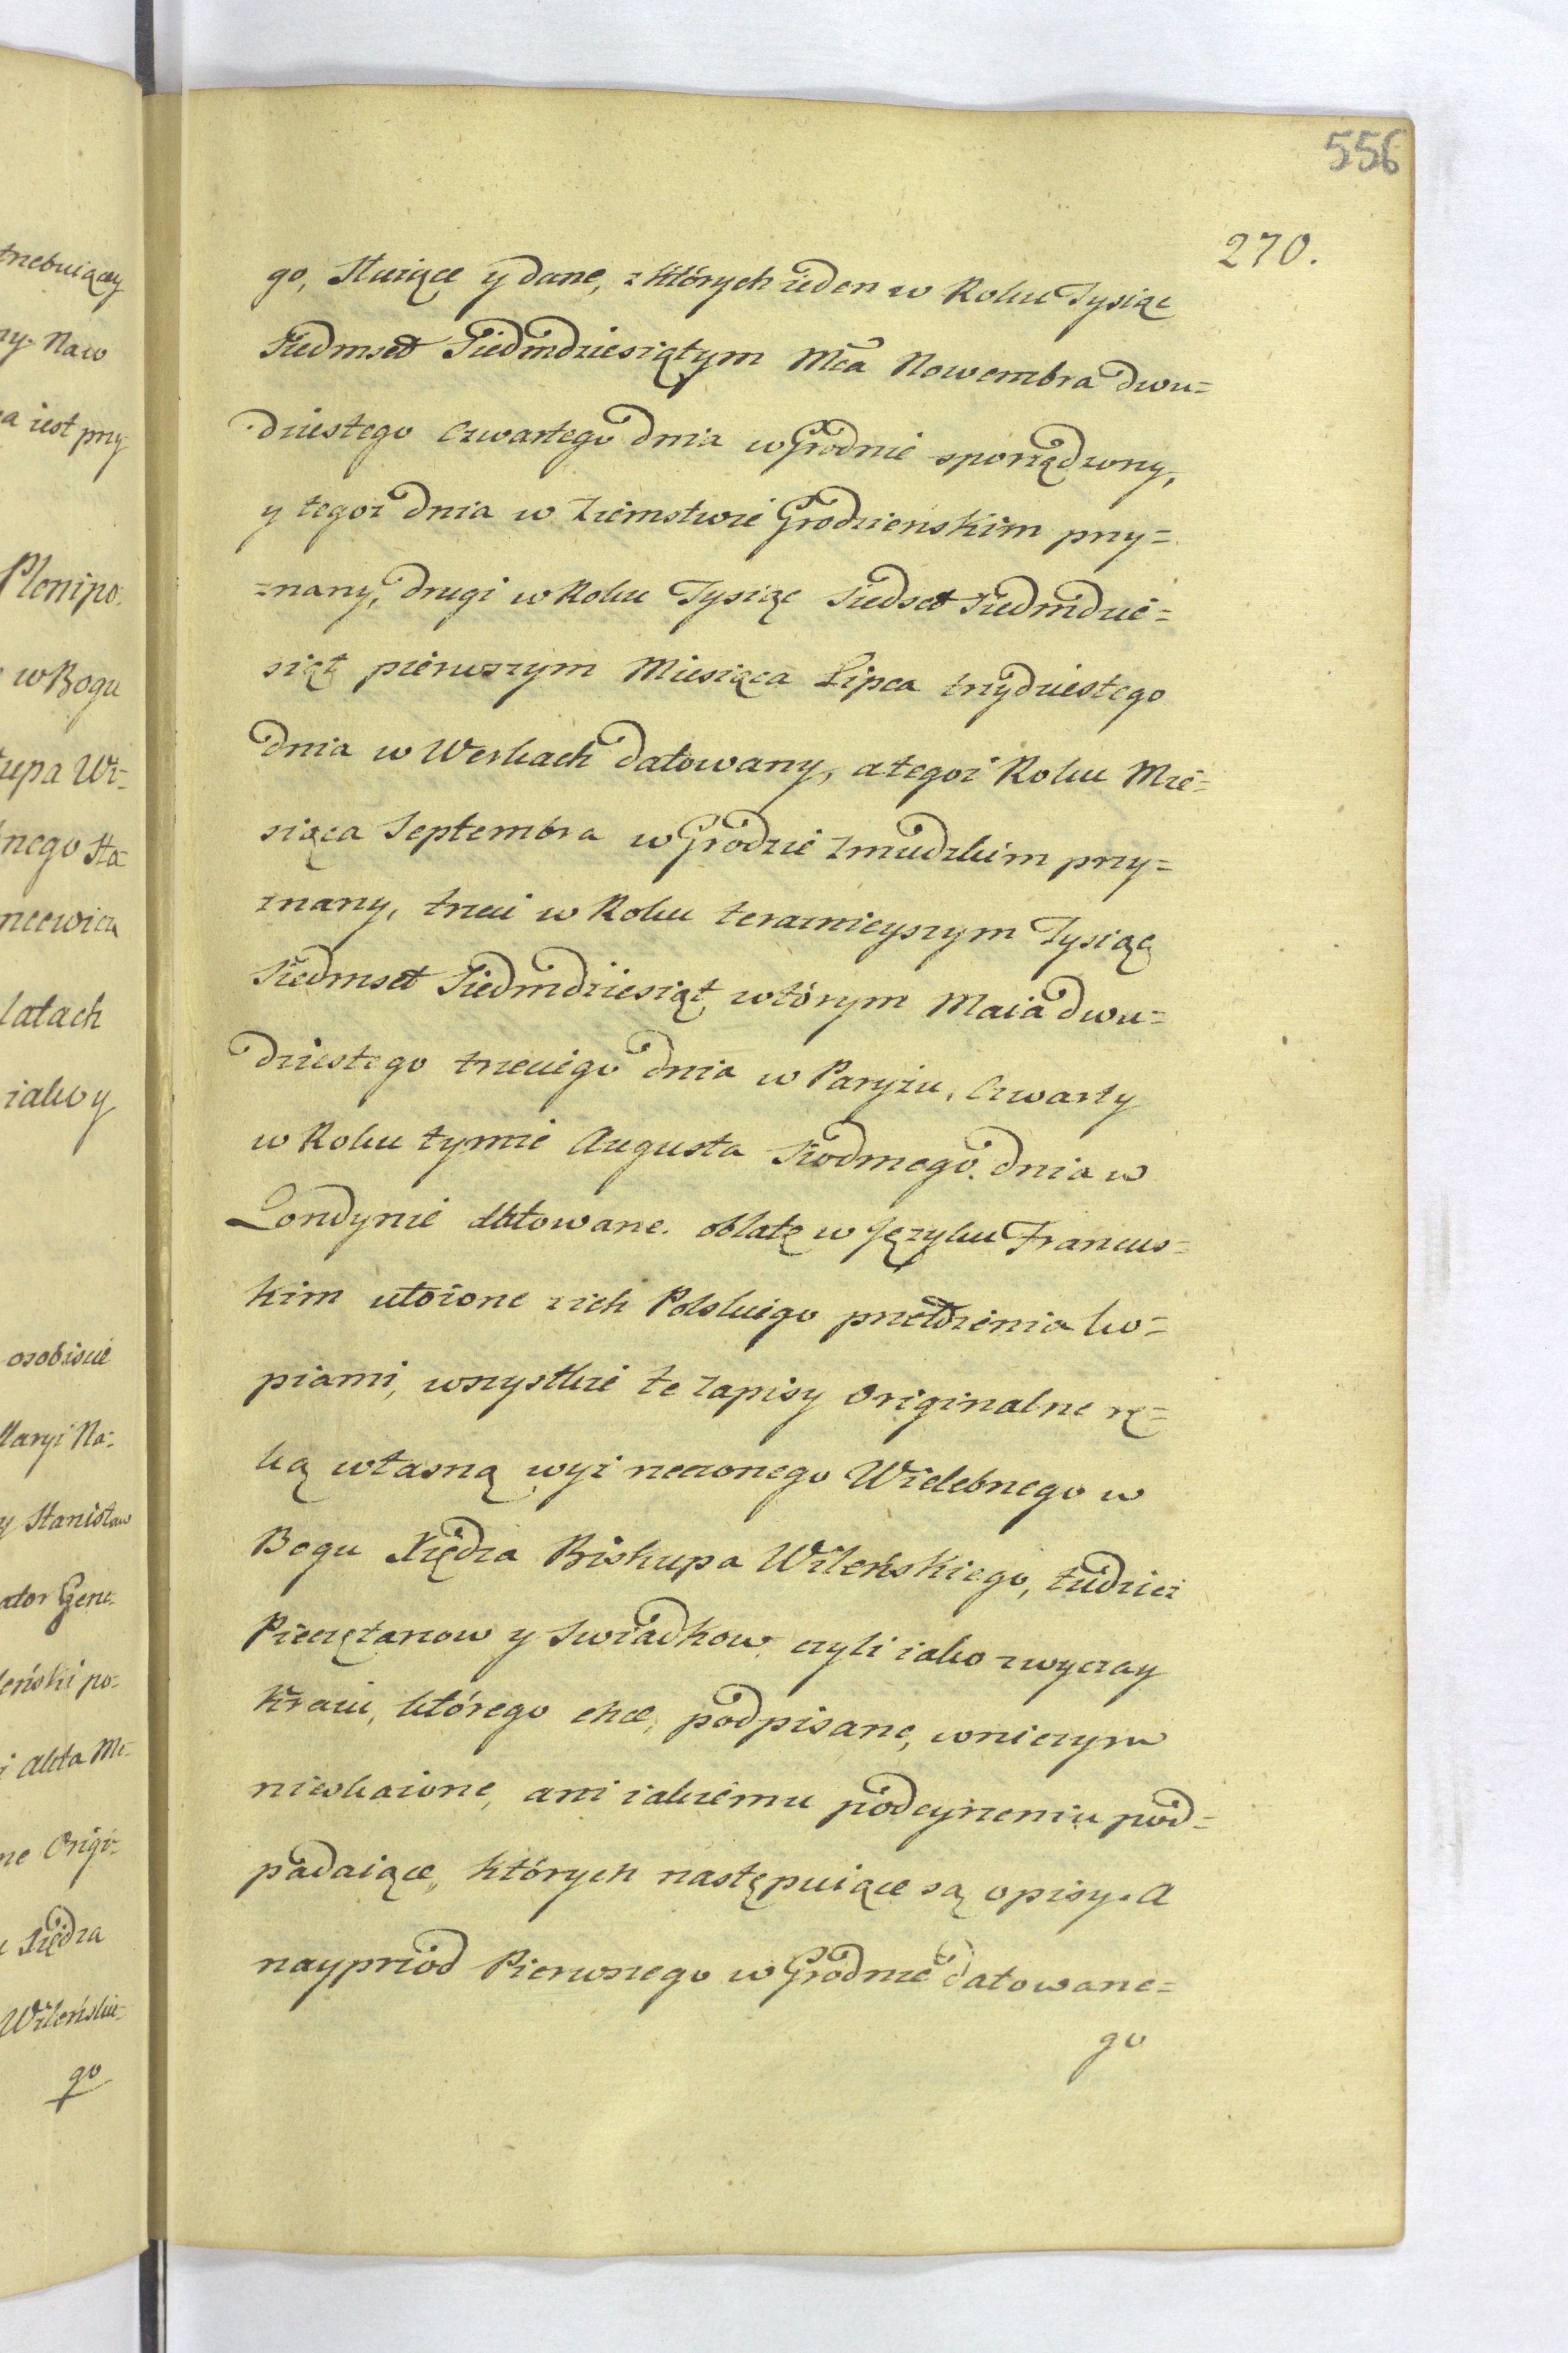 556
270.
go, Służące y dane, z których ieden w Roku Tysiąc
Siedmset Siedmdziesiątym Mca Nowembra dwu=
dziestego czwartego dnia w Grodnie sporządzony,
y tegoż dnia w Ziemstwie Grodzienskim przy=
=znany, drugi w Roku Tysiąc Siedset Siedmdzie=
siąt pierwszym Miesiąca Lipca trzydziestego
dnia w Werkach datowany, a tegoż Roku Mie=
siąca Septembra w Grodzie Zmudzkim przy=
znany, trzeci w Roku teraznieyszym Tysiąc
Siedmset Siedmdziesiąt wtórym Maia dwu=
dziestego trzeciego dnia w Paryżu, czwarty
w Roku tymże Augusta Siodmego dnia w
Londynie datowane. oblatę w Języku Francus=
kim ułożone z ich Polskiego przełożenia ko=
piami, wszystkie te Zapisy Originalne rę=
ką własną wyż rzeczonego Wielebnego w
Bogu Xiędza Biskupa Wileńskiego, tudzież
Pieczętarzow y Swiadkow, czyli iako zwyczay
Kraiu, którego chce, podpisane, w niczym
nieskażone, ani iakiemu podeyrzeniu pod=
padaiące, których następuiące są opisy. A
nayprzód Pierwszego w Grodnie datowane=
go
trzebuiącey
ny. Naw
a iest przy
Plenipo:
w Bogu
kupa Wi=
nego Sta=
ncewicza
latach
iako y
osobiscie
Maryi No=
y Stanisław
ator Gene=
leński po=
i Akta Me=
ne Origi=
Xiędza
Wileńskie=
go